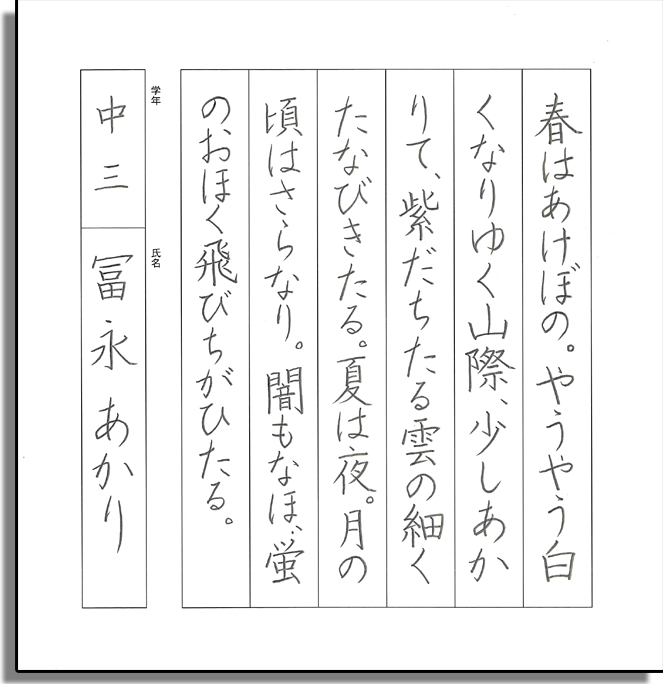 春はあけぼの。やうやう白
くなりゆく山際、少しあか
りて、紫だちたる雲の細く
たなびきたる。夏は夜。月の
頃はさらなり。闇もなほ、蛍
のおほく飛びちがひたる。
学年
中三
氏名
冨永あかり